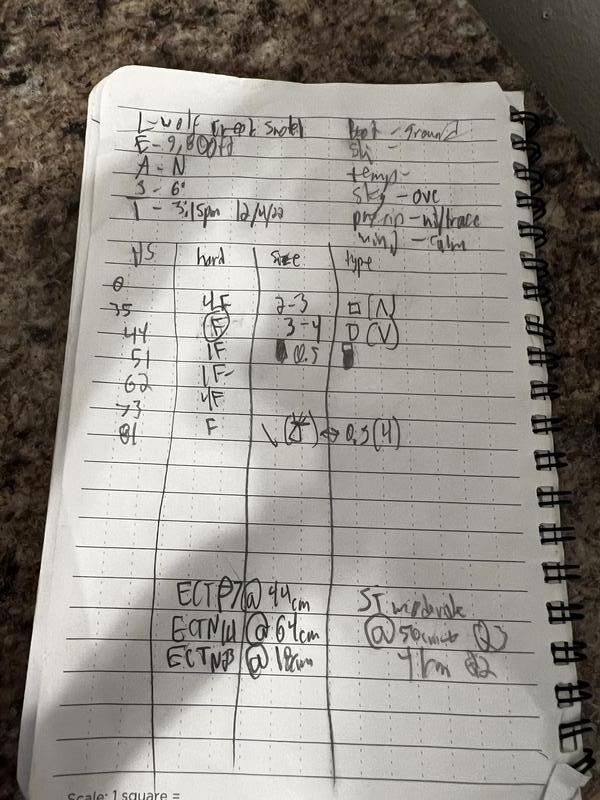 L - wolf creek
E - 9,800ft
A - N
S - 6°
T - 3:15pm 12/4/22
Boot - ground
Ski -
temp -
sky - ovc
precip - nil/trace
wind - calm
HS hard size type
0
35 4F 2-3 □ (Λ)
44 F 3-4 □ (V)
51 1F 0.5
62 1F-
73 4F
81 F
0.5 (4)
ECTP7 @ 44cm
ECTN14 @ 64cm
@ 18cm
ST moderate
@ Q3
Q2
Scale: 1 square =